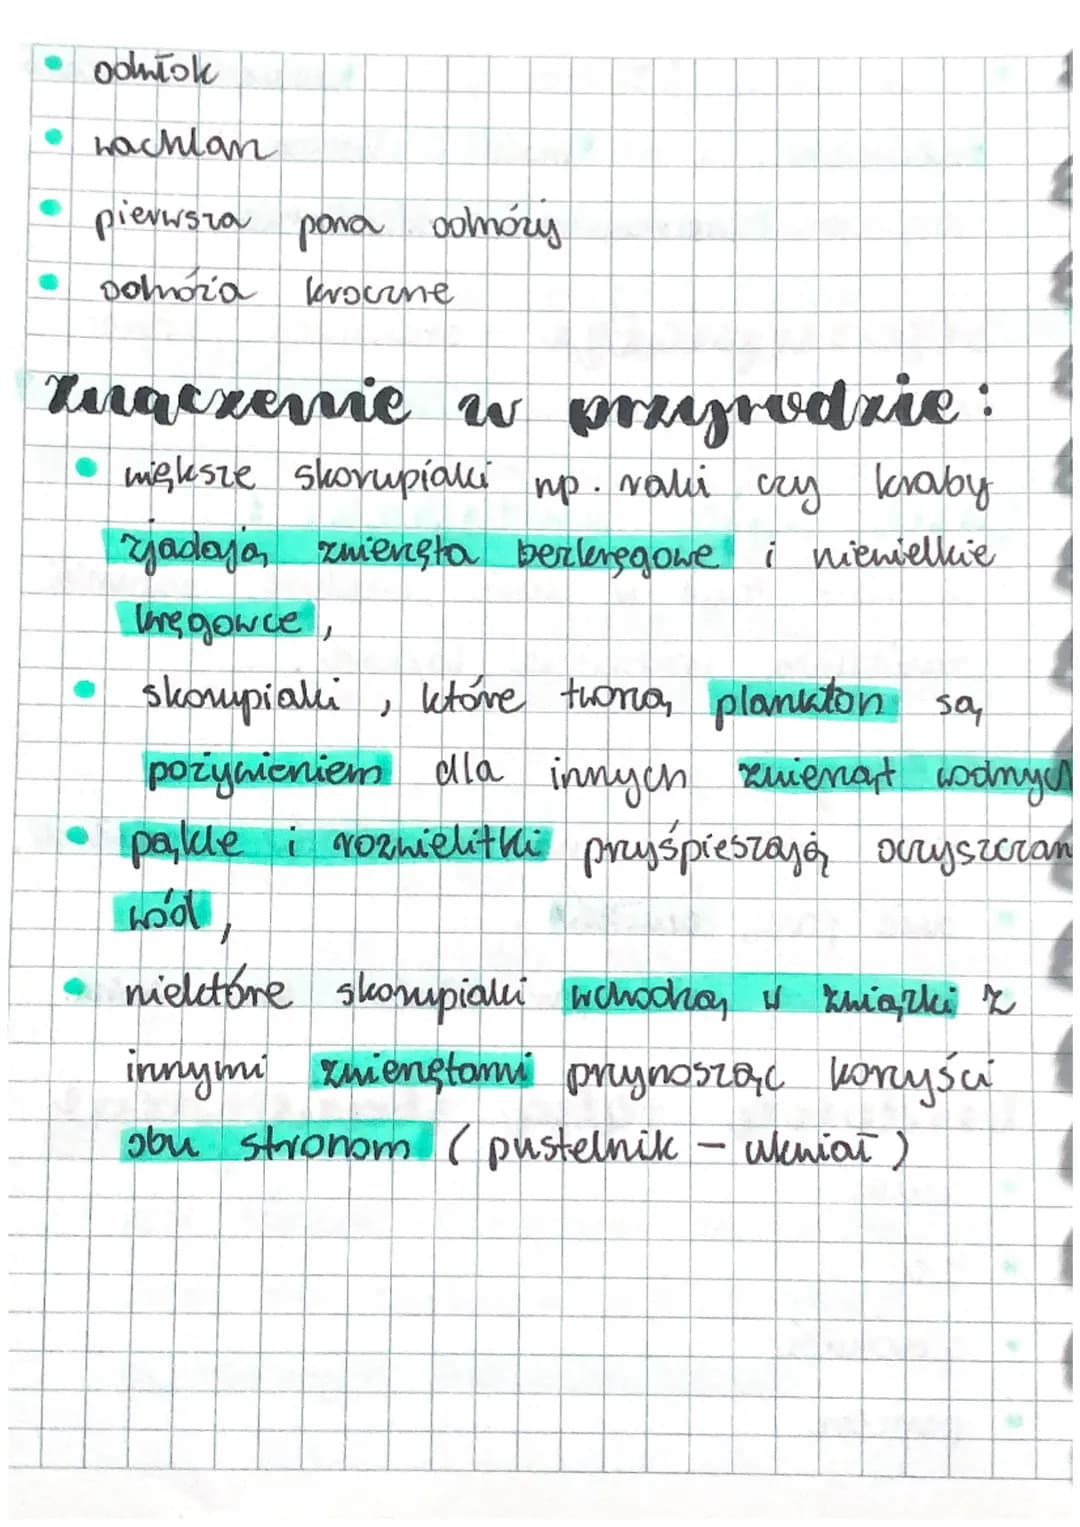 • odwłok
• wachlarz
• pierwsza para odnóży
• odnóża kroczne
Znaczenie w przyrodzie:
• większe skorupiaki np. raki czy kraby
zjadają zwierzęta bezkręgowe i niewielkie
kręgowce,
• skorupiaki, które tworzą plankton są
pożywieniem dla innych zwierząt wodnych
• pąkle i rozwielitki przyśpieszają oczyszczan
wód,
• niektóre skorupiaki wchodzą w związki z
innymi zwierzętami przynosząc korzyści
obu stronom (pustelnik - ukwiał)